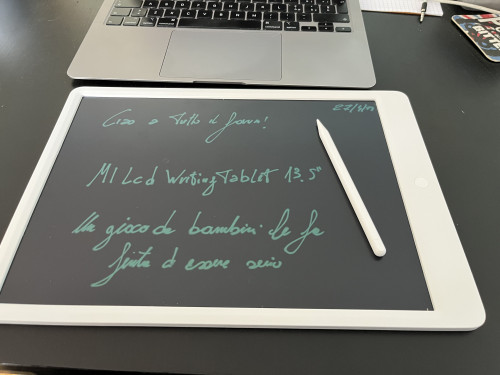 Ciao a tutti il forum!
MI Lcd Writing Tablet 13.5"
Un gioco da bambini che fa
finta d essere serio